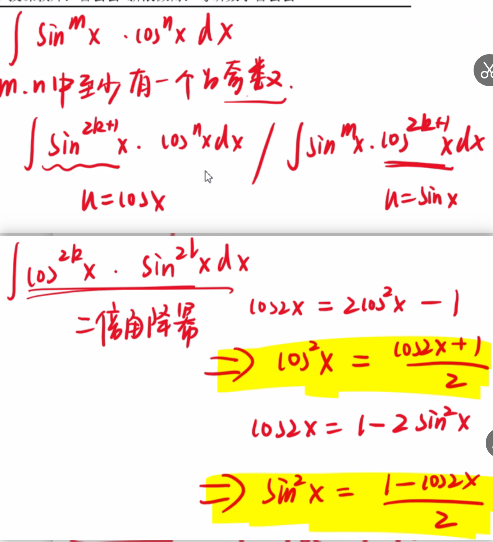 ∫ sin^m x · cos^n x dx
m.n中至少有一个为奇数.
∫ sin^{2k+1} x · cos^n x dx / ∫ sin^m x · cos^{2k+1} x dx
u = cosx
u = sin x
∫ cos^{2k} x · sin^{2l} x dx
二倍角降幂
cos2x = 2cos²x − 1
⇒ cos²x = \frac{cos2x+1}{2}
cos2x = 1 − 2 sin²x
⇒ sin²x = \frac{1−cos2x}{2}